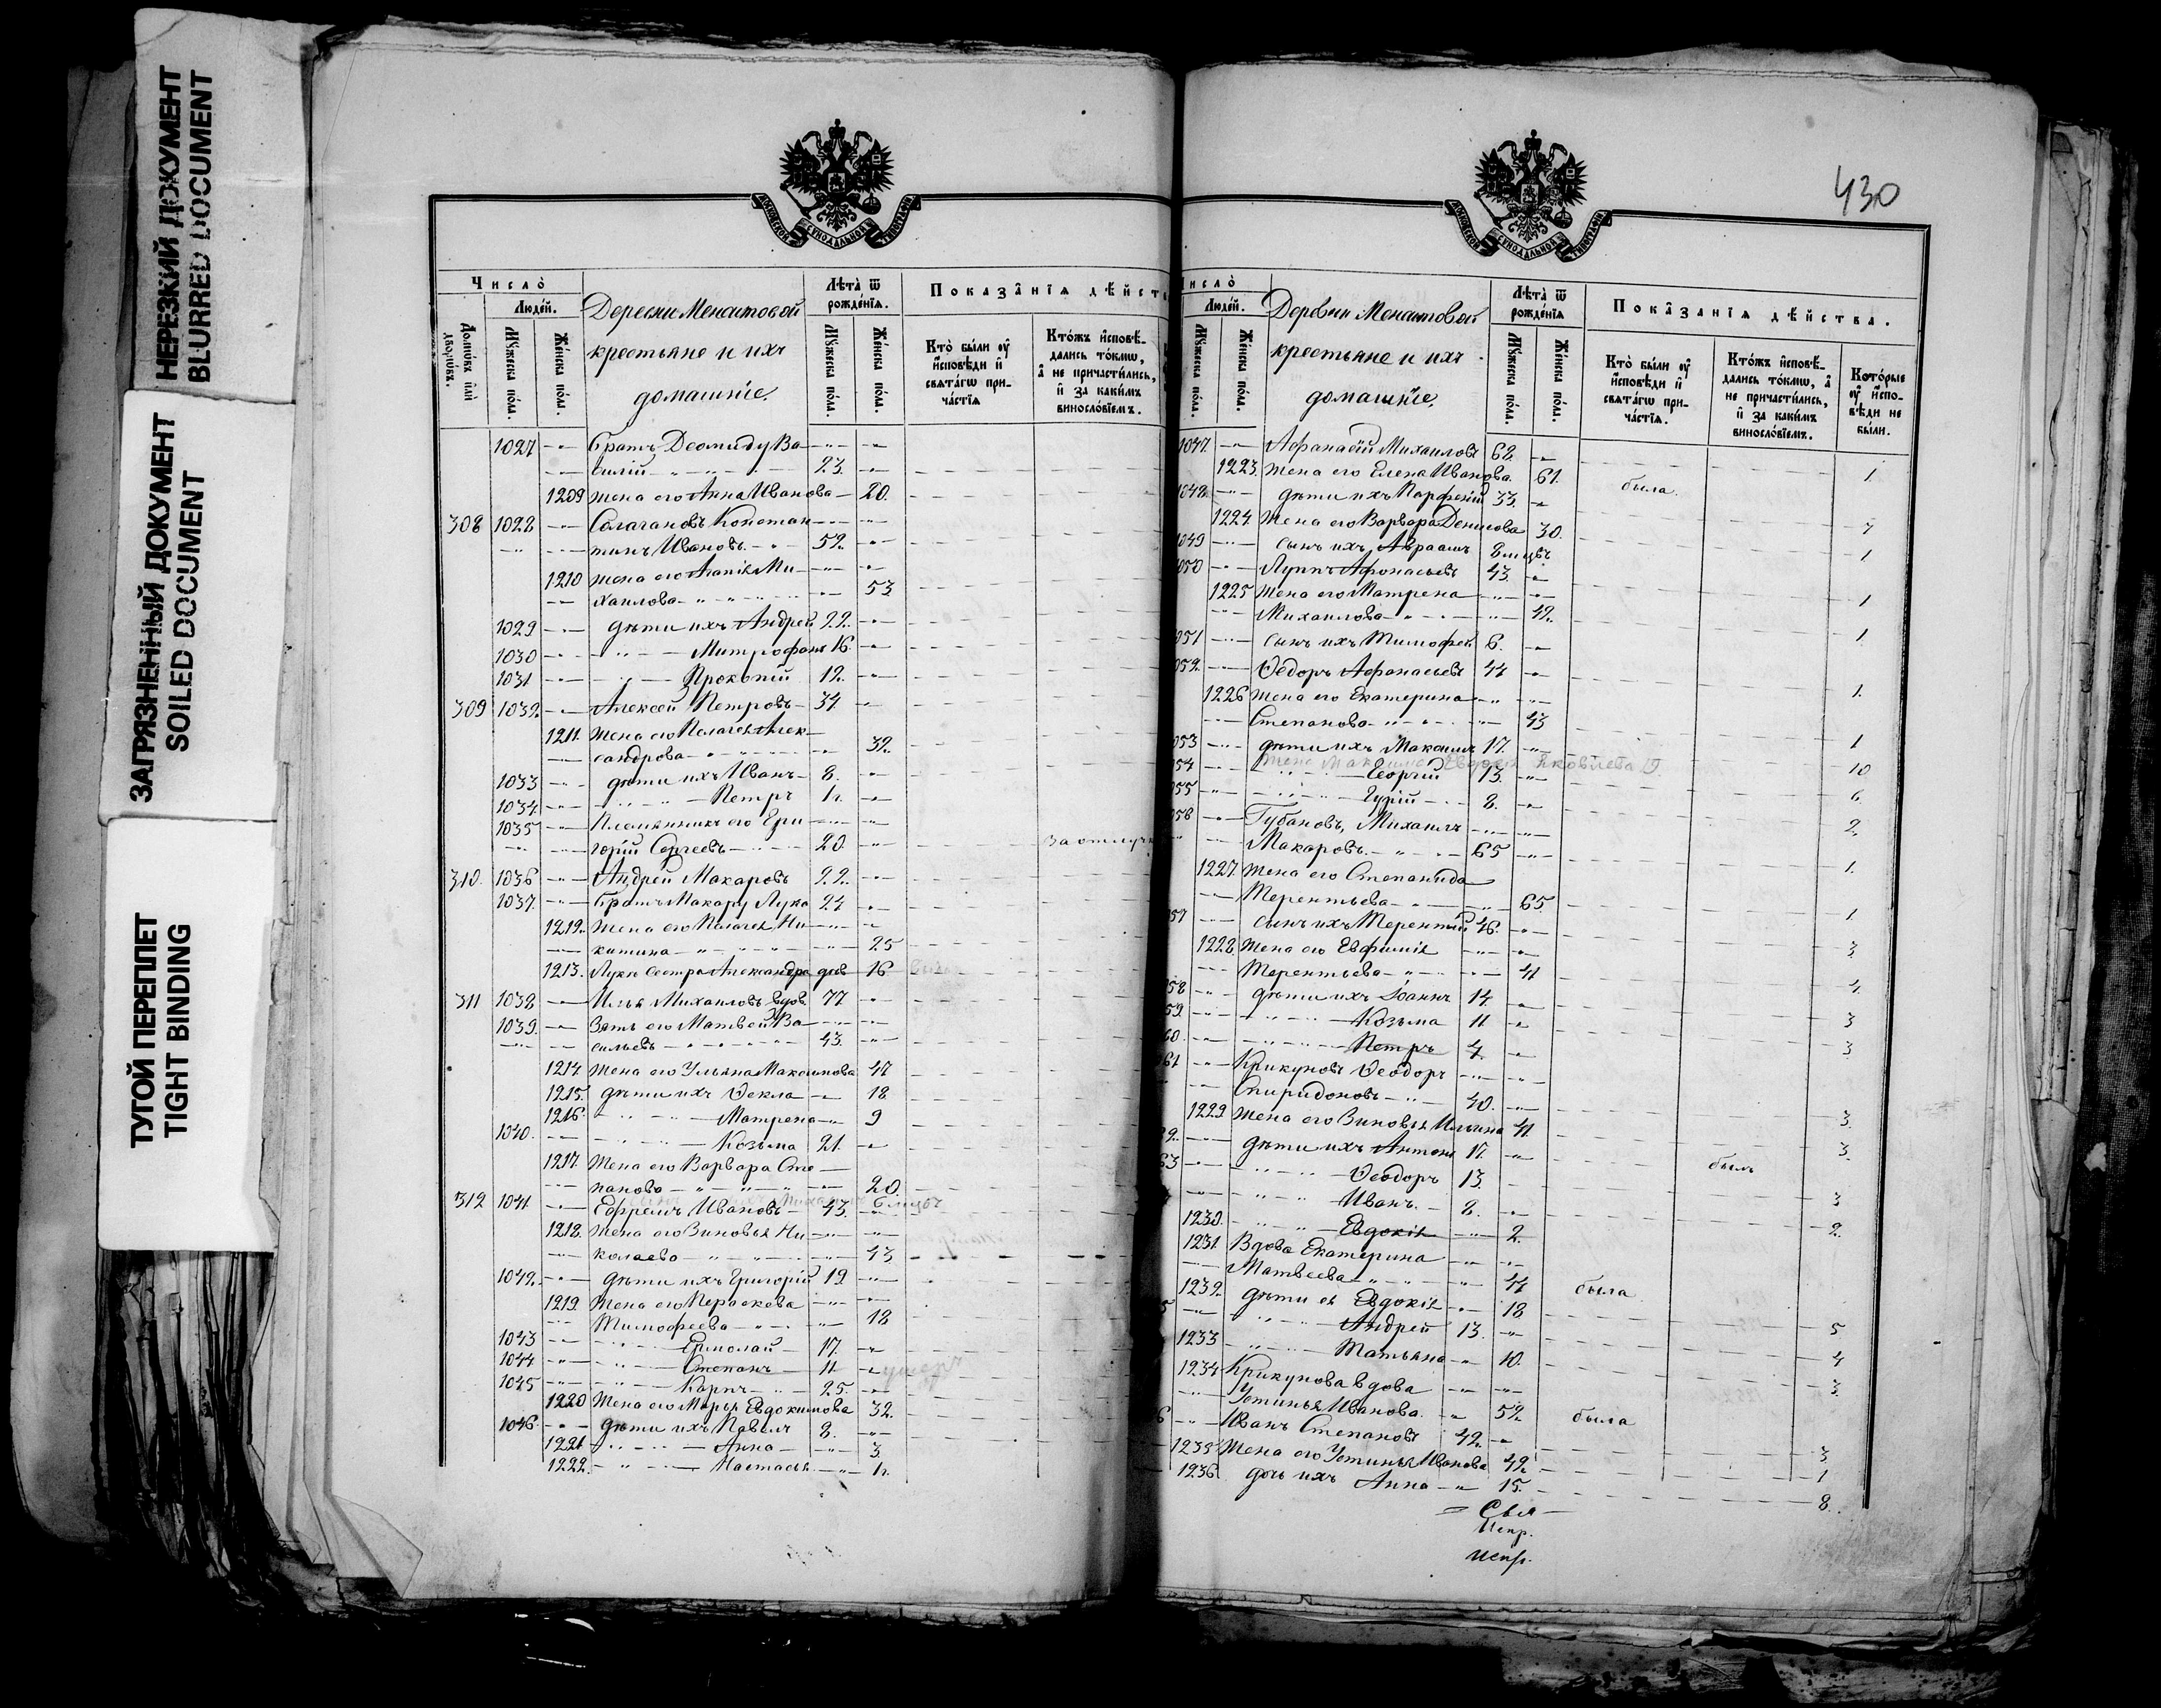 НЕРЕЗКИЙ ДОКУМЕНТ
BLURRED DOCUMENT
ЗАГРЯЗНЕННЫЙ ДОКУМЕНТ
SOILED DOCUMENT
ТУГОЙ ПЕРЕПЛЕТ
TIGHT BINDING
МОСКОВСКОЙ СУНОДАЛЬНОЙ ТИПОГРАФІИ
Число̀
Людей.
Домовъ или дворовъ.
Мужеска пола.
Женска пола.
Деревни Менситовой
крестьяне и ихъ
домашніе.
Лѣта ѿ рожденїѧ.
Мужеска пола.
Женска пола.
Показанїѧ дѣйств
Кто были оу исповѣди и свѧтагѡ причастїѧ
Ктожъ исповѣдались токмѡ, а не причастились, и за какимъ винословїемъ.
1027 Братъ Деомиду Ва-
силій 23.
1209 Жена его Анна Иванова 20.
308 1028 Салагановъ Констан-
тинъ Ивановъ 52.
1210 Жена его Ми-
хаилова 53
1029 дѣти ихъ Андрей 22.
1030 Митрофанъ 16.
1031 Прокопій 12.
309 1032. Алексей Петровъ 34.
1211. Жена его Пелагея Алек-
сандрова 32.
1033 дѣти ихъ Иванъ 8.
1034. Петръ 1 г.
1035 Племянникъ его Гри-
горій Сергеевъ 20. За отлучк
310. 1036 Андрей Макаровъ 22.
1037. Братъ Макару Лука 24
1212. Жена его Пелагея Ни-
китина 25
1213. Луки сестра Александра дев. 16
311 1038 Илья Михаиловъ вдов. 77
1039. Зять его Матвей Ва-
сильевъ 43.
1214 Жена его Ульяна Максимова 47
1215. дѣти ихъ Ѳекла 18
1216. Матрена 9
1040. Козьма 21.
1217. Жена его Варвара Сте-
панова 20.
312 1041. Ефремъ Ивановъ 43.
1218. Жена его Зиновья Ни-
колаева 43
1042. дѣти ихъ Григорій 19
1219. Жена его Пераскева
Тимофеева 18
1043 Ермолай 17.
1044 Степанъ 11 умеръ
1045 Карпъ 25.
1220 Жена его Марья Евдокимова 32.
1046. дѣти ихъ Павелъ 8.
1221 Анна 3.
1222. Настасья 1 г.
430
Число̀
Людей.
Мужеска пола.
Женска пола.
Деревни Менситовой
крестьяне и ихъ
домашніе.
Лѣта ѿ рожденїѧ
Мужеска пола.
Женска пола.
Показанїѧ дѣйства.
Кто были оу исповѣди и свѧтагѡ причастїѧ.
Ктожъ исповѣдались токмѡ, а не причастились, и за какимъ винословїемъ.
Которые оу исповѣди не были.
1047. Афанасій Михаиловъ 62.
1223. Жена его Елена Иванова. 61. была. 1.
1048. дѣти ихъ Парфеній 33.
1224 Жена его Варвара Денисова 30.
1049 сынъ ихъ Авраамъ 8 мцвъ.
1050 Лупъ Афонасьевъ 43.
1225 Жена его Матрена
Михаилова 42.
051 сынъ ихъ Тимофей 6.
052. Ѳедоръ Афанасьевъ 44
1226 Жена его Екатерина
Степанова 43
053 дѣти ихъ Максимъ 17.
Жена Максима Яковлева 19.
054 Георгій 13. 10
055 Гурій 8. 6
056 Губановъ, Михаилъ 2.
Макаровъ 65
1227. Жена его Степанида
Терентьева 65.
57 сынъ ихъ Терентій 46.
1228 Жена его Евфимія
Терентьева 41
58 дѣти ихъ Іоаннъ 14.
59. Козьма 11.
60. Петръ 4.
61 Крикуновъ Ѳеодоръ
Спиридоновъ 40.
1229 Жена его Зиновья Ильина 41.
дѣти ихъ Антонъ 17.
63 Ѳеодоръ 13. былъ
Иванъ 8.
1230. Евдокія 2.
1231. Вдова Екатерина
Матвеева 44 была
1232. дѣти ея Евдокія 18
Андрей 13.
1233 Татьяна 10.
1234 Крикунова вдова
Устинья Иванова. 52. была
Иванъ Степановъ 42.
1235 Жена его Устинья Иванова 42.
1236. дочь ихъ Анна 15. 8.